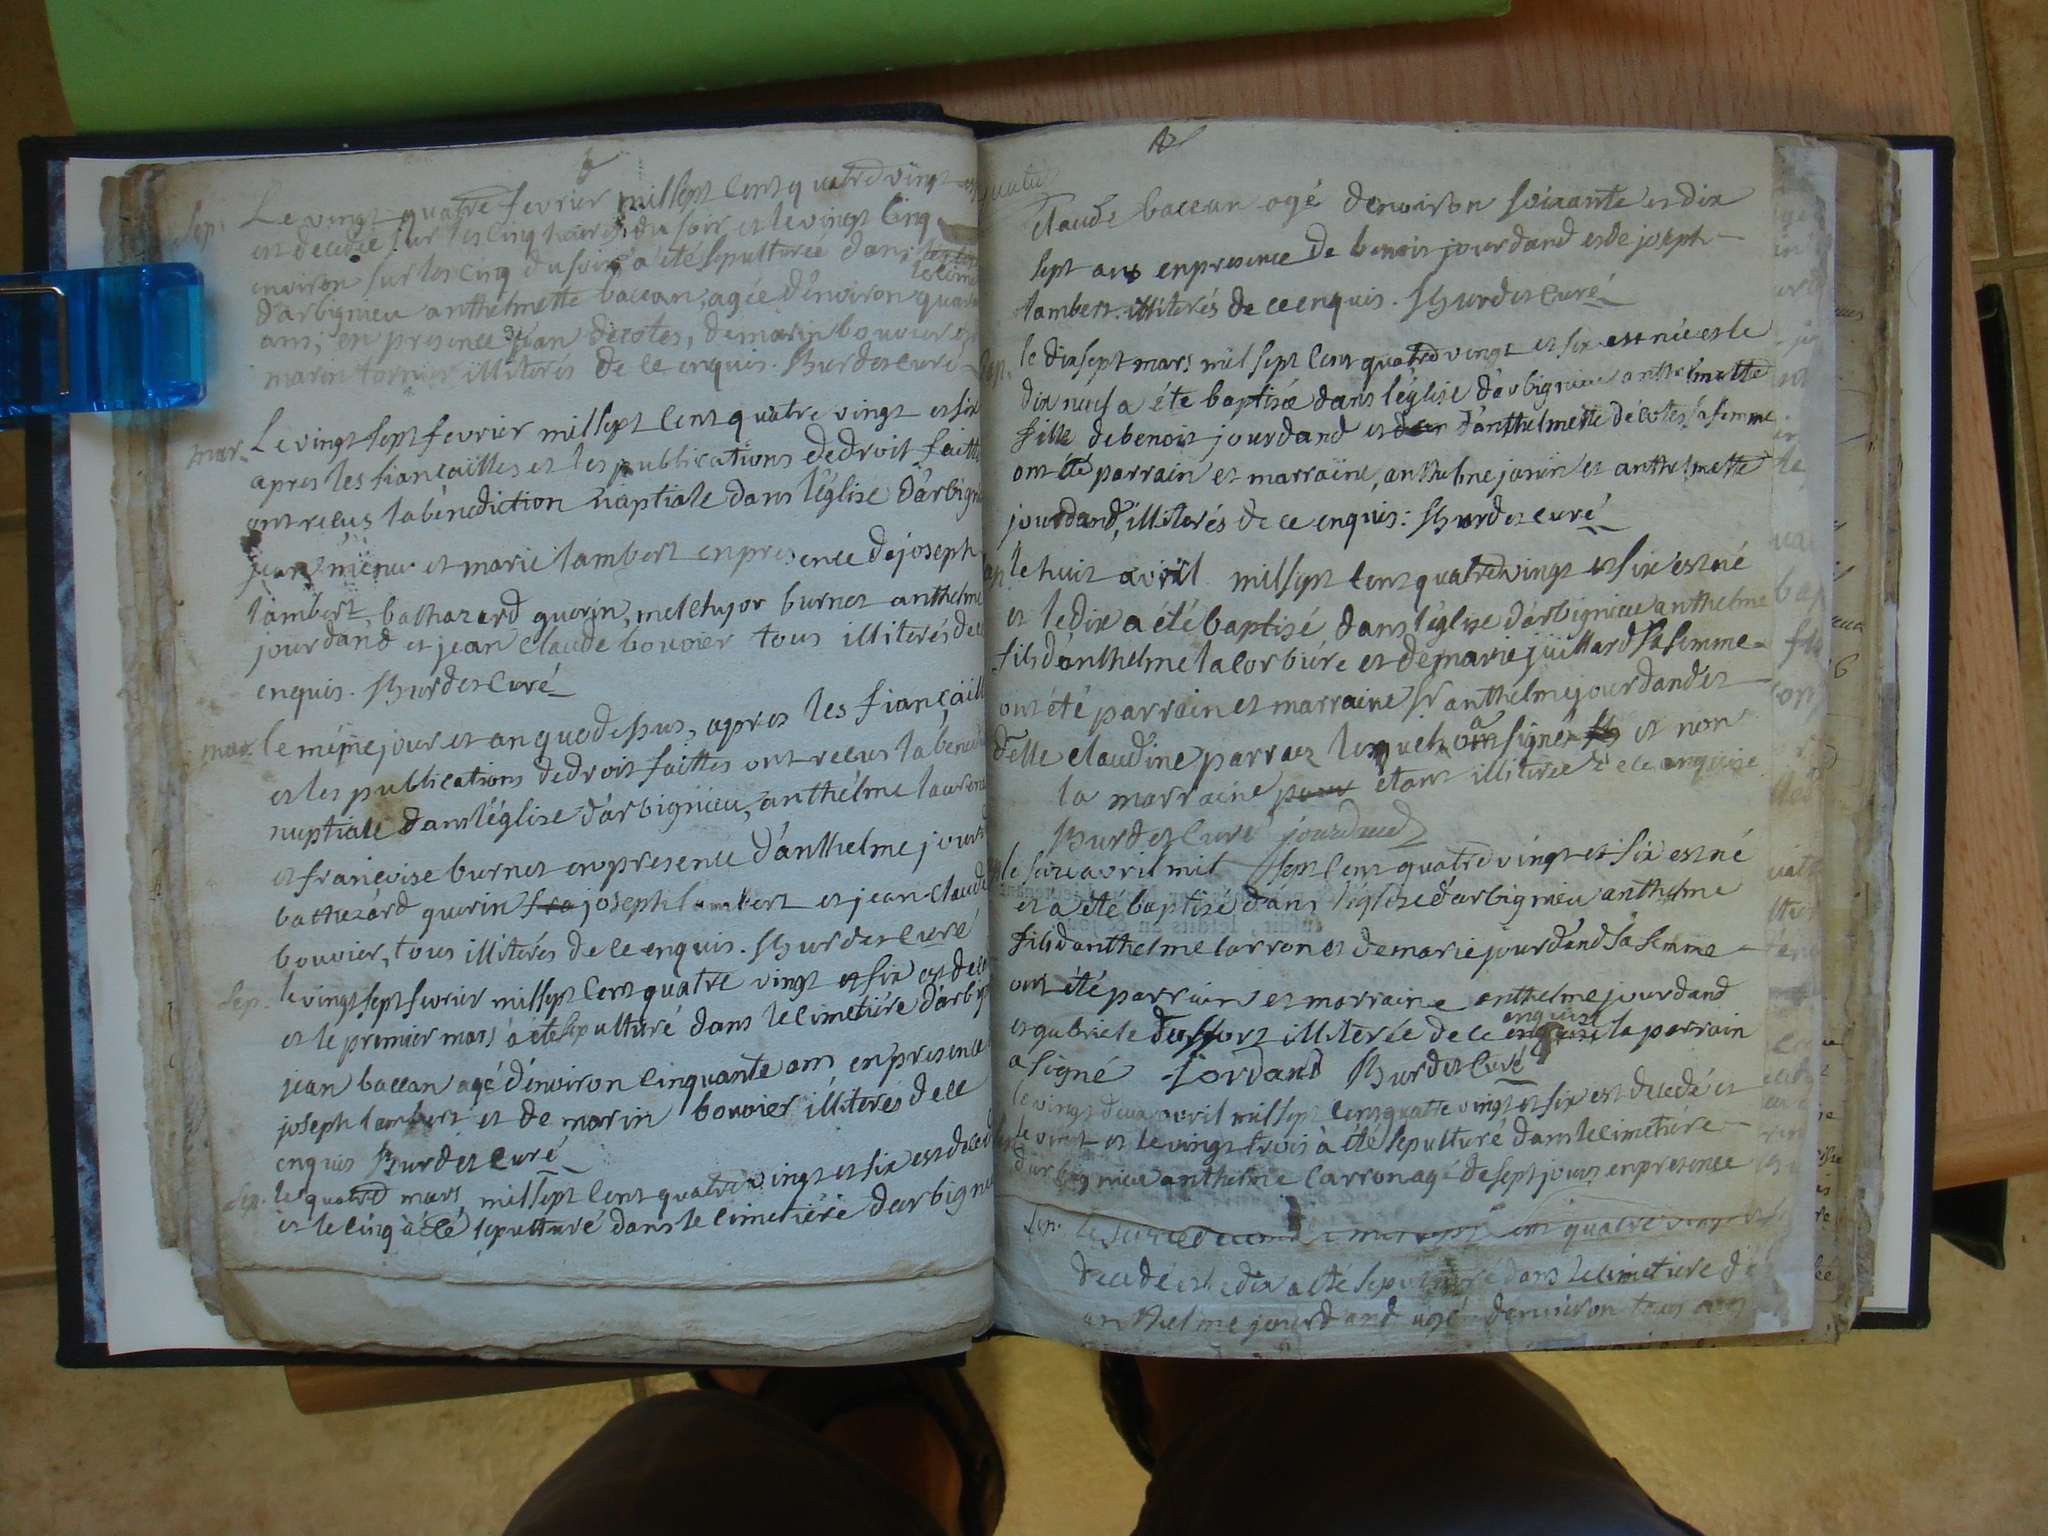 sep. Le vingt quatre fevrier mil sept cent quatre vingt et
est decedée sur les cinq heures du soir et le vingt cinq
environ sur les cinq du soir a été sepulturée dans
d'arbignieu anthelmette baccan, agée d'environ
ans, en presence jean decotes, de marin bouvier et
marin tornier illiterés de ce enquis. hurdet curé
mar. Le vingt sept fevrier mil sept cent quatre vingt et six
apres les fiançailles et les publications de droit faittes
ont recus la bénédiction nuptiale dans l'église d'arbigni
jean et marie lambert en presence de joseph
lambert, balthazard guerin, melchijor burnet anthelme
jourdand et jean claude bouvier tous illiterés de ce
enquis. hurdet curé
mar. le même jour et an que dessus, apres les fiançaill
et les publications de droit faittes ont recus la bened
nuptiale dans l'église d'arbignieu, anthelme laurent
et françoise burnet en presence d'anthelme jourd
bathazard guerin joseph lambert et jean claude
bouvier, tous illiterés de ce enquis. hurdet curé
sep. le vingt sept fevrier mil sept cent quatre vingt et six est dece
et le premier mars a été sepulturé dans le cimetière d'arbig
jean baccan agé d'environ cinquante ans en presence
joseph lambert et de marin bouvier illiterés de ce
enquis hurdet curé
sep. le quatre mars mil sept cent quatre vingt et six est deced
et le cinq a été sepulturé dans le cimetière d'arbigni
claude baccan agé d'environ soixante et dix
sept ans en presence de benoit jourdand et de joseph
lambert illiterés de ce enquis. hurdet curé
le dix sept mars mil sept cent quatre vingt et six est née et le
dix neuf a été baptisée dans l'église d'arbignieu anthelmette
fille de benoit jourdand et d'anthelmette décotes sa femme
ont été parrain et marraine, anthelme janin et anthelmette
jourdand, illiterés de ce enquis: hurdet curé
le huit avril mil sept cent quatre vingt et six est né
et le dix a été baptisé dans l'église d'arbignieu anthelme
fils d'anthelme lacorbiére et de marie juillard sa femme
ont été parrain et marraine Sr anthelme jourdand et
delle claudine parraz lesquels signé et non
la marraine etant illiterée de ce enquise
hurdet curé jourdand
le seize avril mil sept cent quatre vingt et six est né
et a été baptisé dans l'église d'arbignieu anthelme
fils d'anthelme carron et de marie jourdand sa femme
ont été parrain et marraine anthelme jourdand
et gabriele duffort illiterée de ce enquise la parrain
a signé jordand hurdet curé
le vingt deux avril mil sept cent quatre vingt et six est decedé et
le vint et le vingt trois a été sepulturé dans le cimetière
d'arbignieu anthelme carron agé de sept jours en presence
sep. le quatre vingt
decedé et le dix a été sepulturé dans le cimetiere d
anthelme jourdand agé d'environ